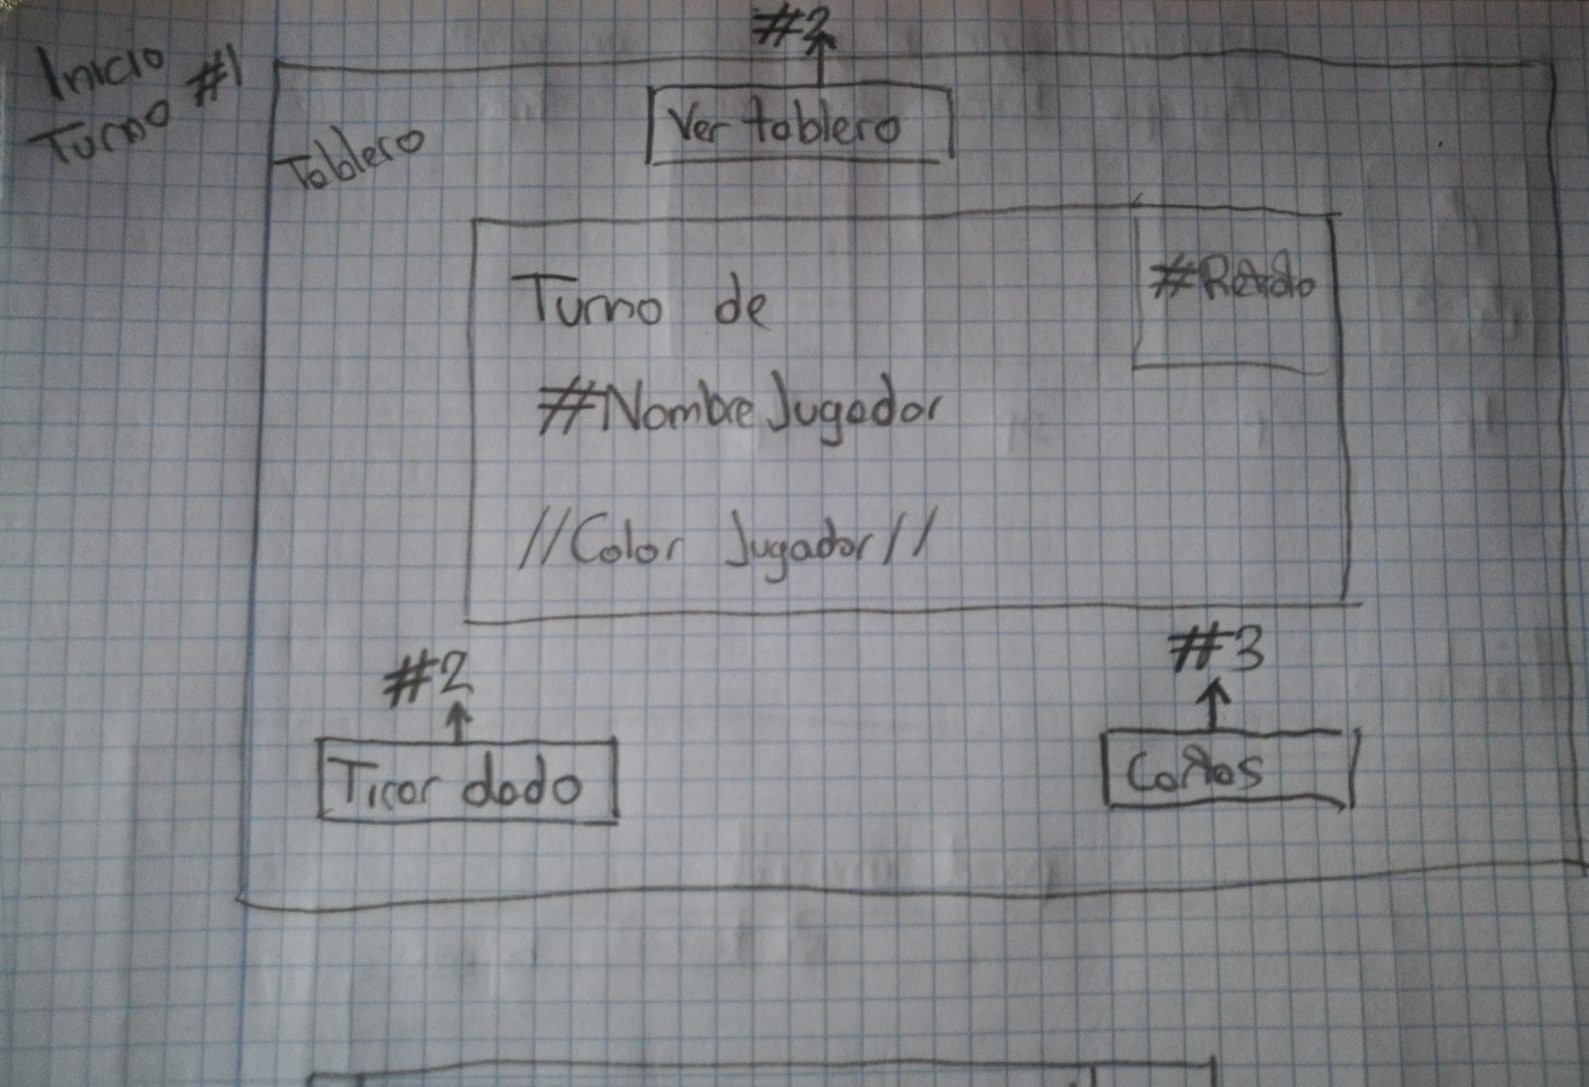 Inicio
Turno #1
Tablero
Ver tablero
Turno de
#Nombre Jugador
//Color Jugador//
#2
#3
Tirar dado
Cartas